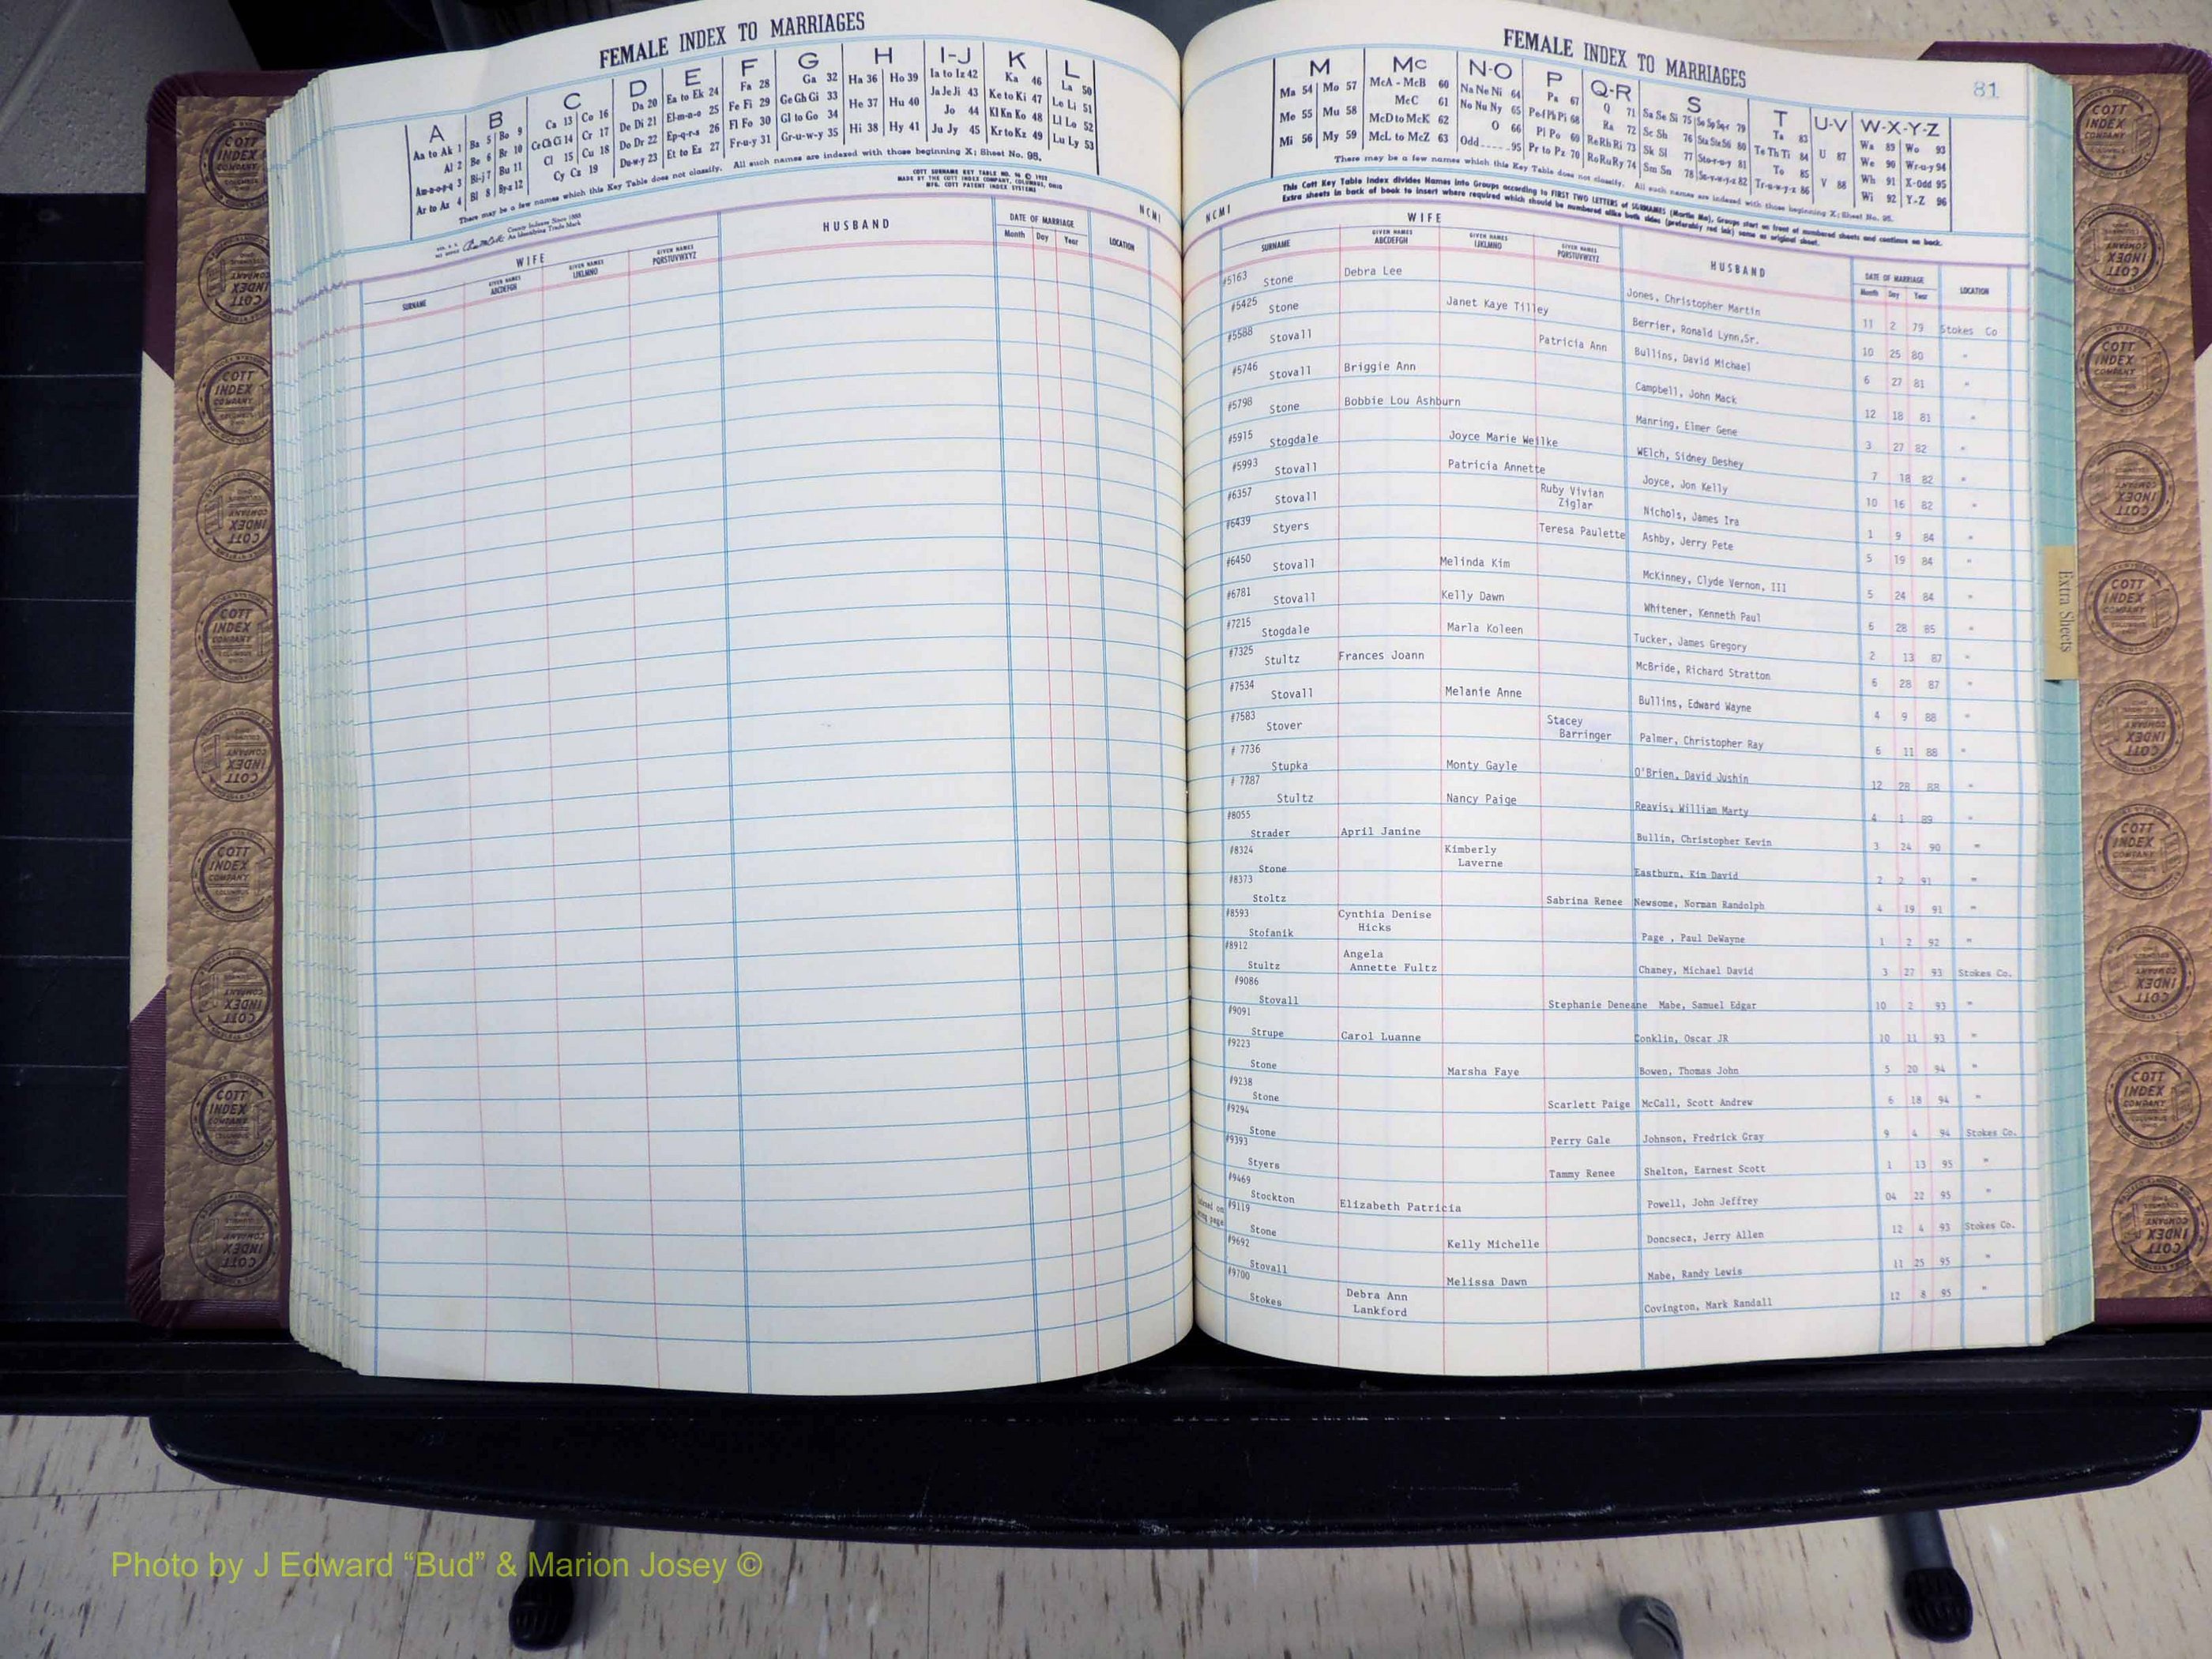 FEMALE INDEX TO MARRIAGES
A B C D E F G H I-J K L
Aa to Ak 1 Ba 5 Bo 9 Ca 13 Co 16 Da 20 Ea to Ek 24 Fa 28 Ga 32 Ha 36 Ho 39 Ia to Iz 42 Ka 46 La 50
Al 2 Be 6 Br 10 Ce Ch Ci 14 Cr 17 De Di 21 El-m-n-o 25 Fe Fi 29 Ge Gh Gi 33 He 37 Hu 40 Ja Je Ji 43 Ke to Ki 47 Le Li 51
Am-n-o-p-q 3 Bi-j 7 Bu 11 Cl 15 Cu 18 Do Dr 22 Ep-q-r-s 26 Fl Fo 30 Gl to Go 34 Hi 38 Hy 41 Jo 44 Kl Kn Ko 48 Ll Lo 52
Ar to Az 4 Bl 8 By-z 12 Cy Cz 19 Du-w-y 23 Et to Ez 27 Fr-u-y 31 Gr-u-w-y 35 Ju Jy 45 Kr to Kz 49 Lu Ly 53
There may be a few names which this Key Table does not classify. All such names are indexed with those beginning X; Sheet No. 98.
MADE BY THE COTT INDEX COMPANY, COLUMBUS, OHIO
MFG. COTT PATENT INDEX SYSTEMS
County Indexes Since 1888
An Identifying Trade Mark
NCMI
WIFE HUSBAND DATE OF MARRIAGE LOCATION
SURNAME GIVEN NAMES ABCDEFGH GIVEN NAMES IJKLMNO GIVEN NAMES PQRSTUVWXYZ Month Day Year
FEMALE INDEX TO MARRIAGES
81
M Mc N-O P Q-R S T U-V W-X-Y-Z
Ma 54 Mo 57 McA - McB 60 Na Ne Ni 64 Pa 67 Q 71 Sa Se Si 75 Ta 83 Wa 89 Wo 93
Me 55 Mu 58 McC 61 No Nu Ny 65 Pe-f Ph Pi 68 Ra 72 Sc Sh 76 Sta Ste Sti 80 Te Th Ti 84 U 87 We 90 Wr-u-y 94
Mi 56 My 59 McD to McK 62 O 66 Pl Po 69 Re Rh Ri 73 Sk Sl 77 Sto-r-u-y 81 To 85 V 88 Wh 91 X-Odd 95
McL to McZ 63 Odd 95 Pr to Pz 70 Ro Ru Ry 74 Sm Sn 78 Su-v-w-y-z 82 Tr-u-w-y-z 86 Wi 92 Y-Z 96
There may be a few names which this Key Table does not classify. All such names are indexed with those beginning X; Sheet No. 98.
This Cott Key Table Index divides Names into Groups according to FIRST TWO LETTERS of SURNAMES (Martin Ma), Groups start on front of numbered sheets and continue on back.
Extra sheets in back of book to insert where required which should be numbered alike both sides (preferably red ink) same as original sheet.
NCMI
WIFE HUSBAND DATE OF MARRIAGE LOCATION
SURNAME GIVEN NAMES ABCDEFGH GIVEN NAMES IJKLMNO GIVEN NAMES PQRSTUVWXYZ Month Day Year
#5163 Stone Debra Lee Jones, Christopher Martin 11 2 79 Stokes Co
#5425 Stone Janet Kaye Tilley Berrier, Ronald Lynn,Sr. 10 25 80 "
#5588 Stovall Patricia Ann Bullins, David Michael 6 27 81 "
#5746 Stovall Briggie Ann Campbell, John Mack 12 18 81 "
#5798 Stone Bobbie Lou Ashburn Manring, Elmer Gene 3 27 82 "
#5915 Stogdale Joyce Marie Weilke WElch, Sidney Deshey 7 18 82 "
#5993 Stovall Patricia Annette Joyce, Jon Kelly 10 16 82 "
#6357 Stovall Ruby Vivian Ziglar Nichols, James Ira 1 9 84 "
#6439 Styers Teresa Paulette Ashby, Jerry Pete 5 19 84 "
#6450 Stovall Melinda Kim McKinney, Clyde Vernon, III 5 24 84 "
#6781 Stovall Kelly Dawn Whitener, Kenneth Paul 6 28 85 "
#7215 Stogdale Marla Koleen Tucker, James Gregory 2 13 87 "
#7325 Stultz Frances Joann McBride, Richard Stratton 6 28 87 "
#7534 Stovall Melanie Anne Bullins, Edward Wayne 4 9 88 "
#7583 Stover Stacey Barringer Palmer, Christopher Ray 6 11 88 "
# 7736 Stupka Monty Gayle O'Brien, David Jushin 12 28 88 "
# 7787 Stultz Nancy Paige Reavis, William Marty 4 1 89 "
#8055 Strader April Janine Bullin, Christopher Kevin 3 24 90 "
#8324 Stone Kimberly Laverne Eastburn, Kim David 2 2 91 "
#8373 Stoltz Sabrina Renee Newsome, Norman Randolph 4 19 91 "
#8593 Stofanik Cynthia Denise Hicks Page , Paul DeWayne 1 2 92 "
#8912 Stultz Angela Annette Fultz Chaney, Michael David 3 27 93 Stokes Co.
#9086 Stovall Stephanie Deneane Mabe, Samuel Edgar 10 2 93 "
#9091 Strupe Carol Luanne Conklin, Oscar JR 10 11 93 "
#9223 Stone Marsha Faye Bowen, Thomas John 5 20 94 "
#9238 Stone Scarlett Paige McCall, Scott Andrew 6 18 94 "
#9294 Stone Perry Gale Johnson, Fredrick Gray 9 4 94 Stokes Co.
#9393 Styers Tammy Renee Shelton, Earnest Scott 1 13 95 "
#9469 Stockton Elizabeth Patricia Powell, John Jeffrey 04 22 95 "
#9119 Stone Kelly Michelle Doncsecz, Jerry Allen 12 4 93 Stokes Co.
#9692 Stovall Melissa Dawn Mabe, Randy Lewis 11 25 95 "
#9700 Stokes Debra Ann Lankford Covington, Mark Randall 12 8 95 "
Extra Sheets
COTT INDEX COMPANY
Photo by J Edward “Bud” & Marion Josey ©